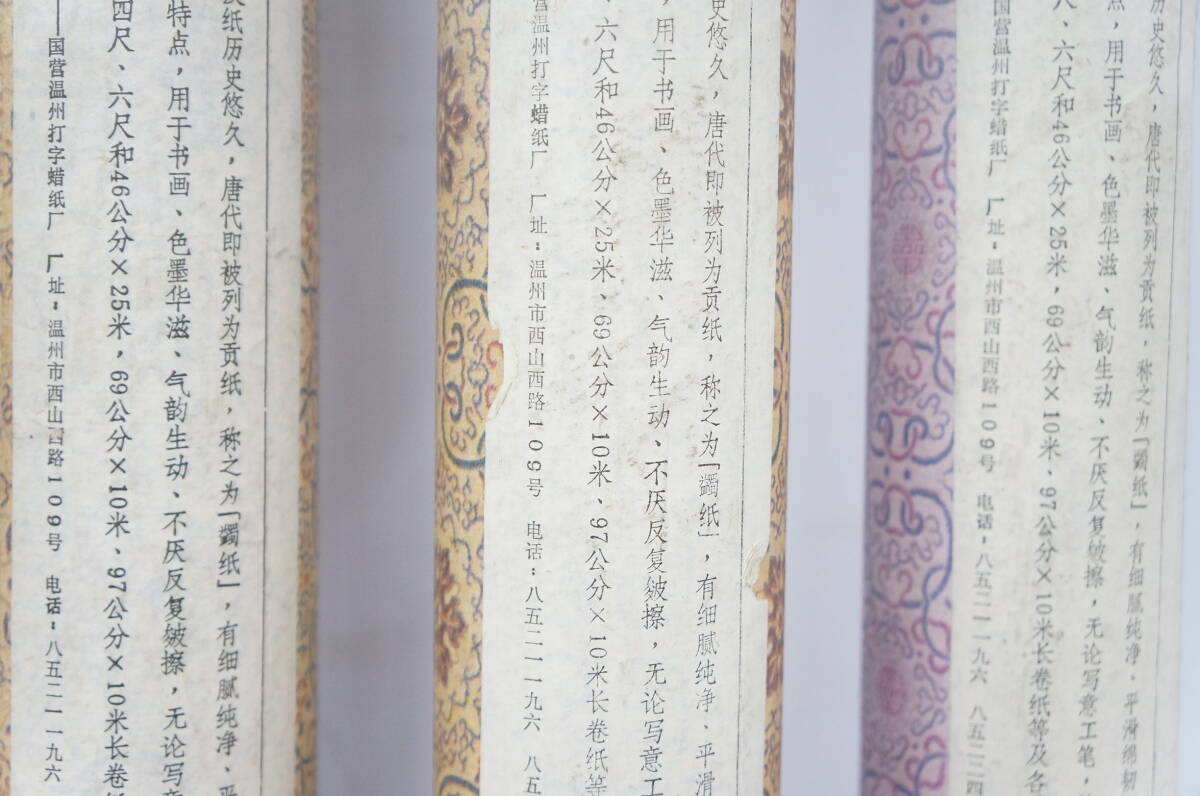 纸历史悠久，唐代即被列为贡纸，称之为「蠲纸」，有细腻纯净、平
特点，用于书画、色墨华滋、气韵生动、不厌反复皴擦，无论写意
四尺、六尺和46公分×25米，69公分×10米、97公分×10米长卷
——国营温州打字蜡纸厂 厂址：温州市西山西路109号 电话：八五二一一九六
史悠久，唐代即被列为贡纸，称之为「蠲纸」，有细腻纯净、平滑
，用于书画、色墨华滋、气韵生动、不厌反复皴擦，无论写意工
、六尺和46公分×25米、69公分×10米、97公分×10米长卷纸等
营温州打字蜡纸厂 厂址：温州市西山西路109号 电话：八五二一一九六 八五
历史悠久，唐代即被列为贡纸，称之为「蠲纸」，有细腻纯净、平滑绵韧
点，用于书画、色墨华滋、气韵生动、不厌反复皴擦，无论写意工笔，
尺、六尺和46公分×25米，69公分×10米、97公分×10米长卷纸等及各
国营温州打字蜡纸厂 厂址：温州市西山西路109号 电话：八五二一一九六 八五二二四